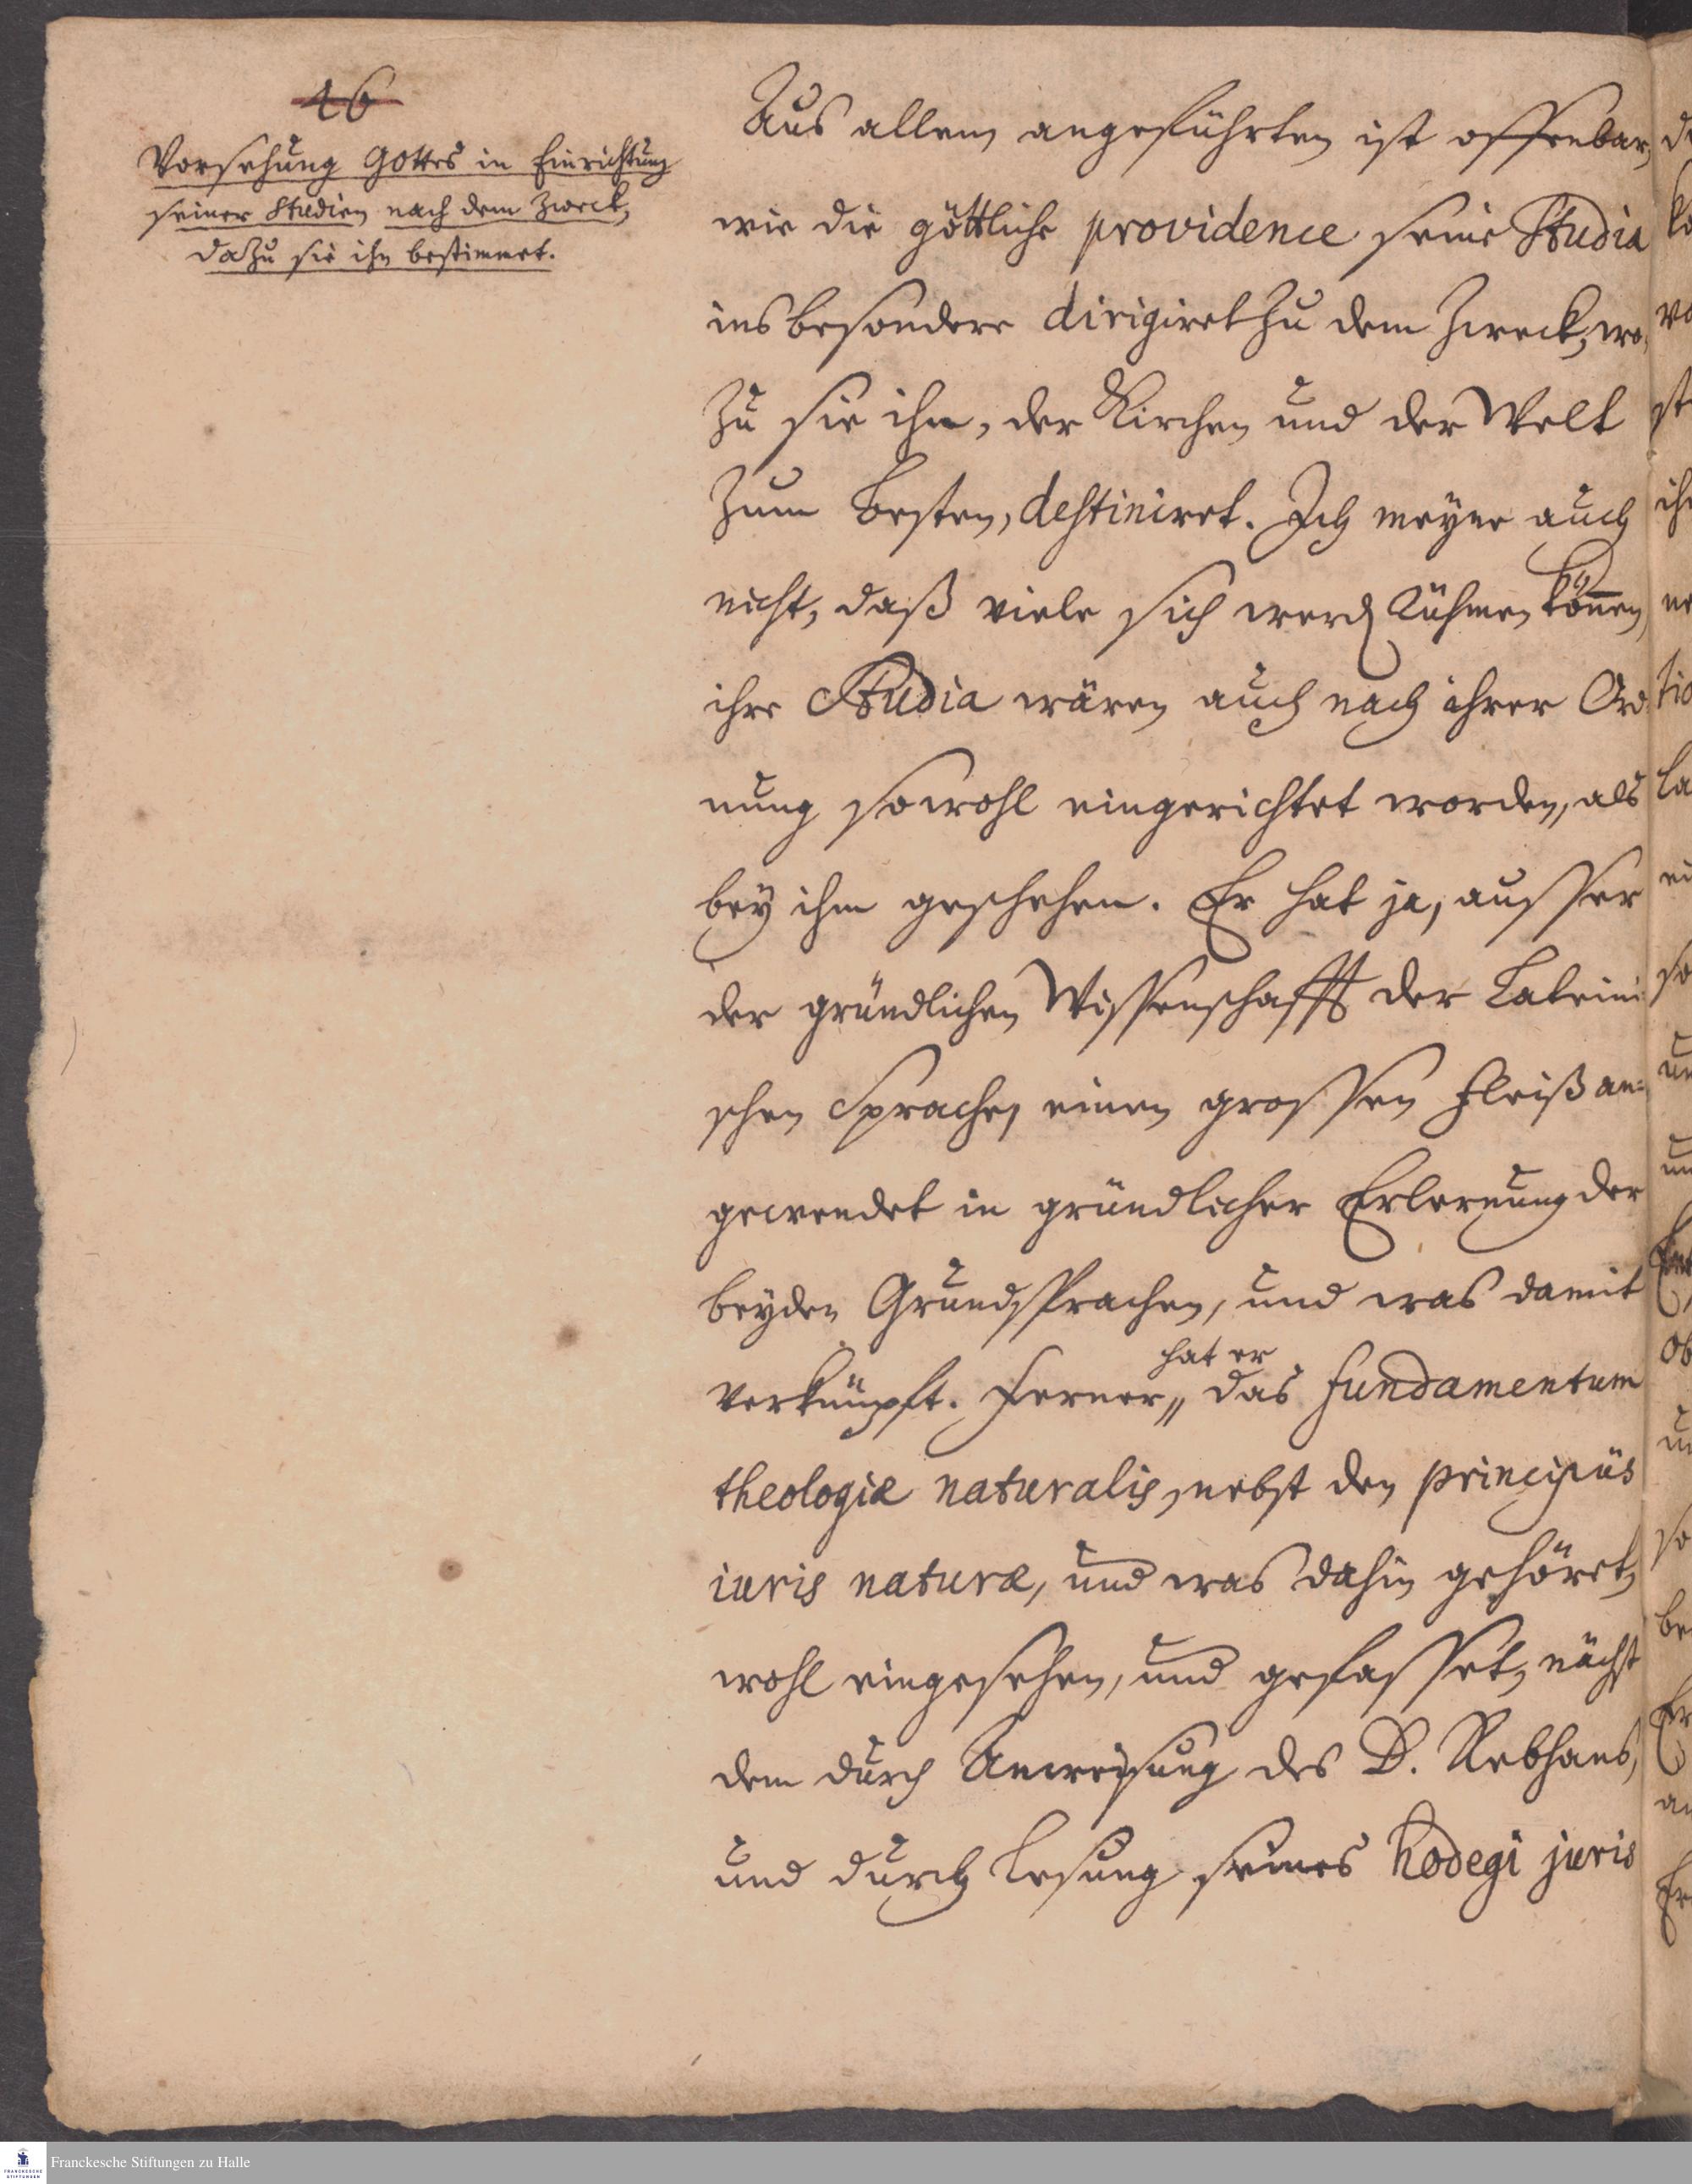 46
Vorsehung Gottes in Einrichtung
seiner Studien nach dem Zweck,
dazu sie ihn bestimmet.
Aus allem angeführten ist offenbar,
wie die göttliche providence seine Studia
ins besondere dirigiret zu dem Zweck, wo,
zu sie ihn, der Kirchen und der Welt
zum Besten, destiniret. Ich meyne auch
nicht, daß viele sich werd rühmen können,
ihre Studia wären auch nach ihrer Ord
nung sowohl eingerichtet worden, als
bey ihm geschehen. Er hat ja, ausser
der gründlichen Wissenschafft der Lateini
schen Sprache, einen grossen Fleiß an=
gewendet in gründlicher Erlernung der
beyden GrundSprachen, und was damit
verknüpft. Ferner,, das fundamentum
hat er
theologiæ naturalis, nebst den principiis
iuris naturæ, und was dahin gehöret,
wohl eingesehen, und gefasset, nächst
dem durch Anweisung des D. Rebhans,
und durch Lesung seines hodegi juris
Franckesche Stiftungen zu Halle
FRANCKESCHE
STIFTUNGEN